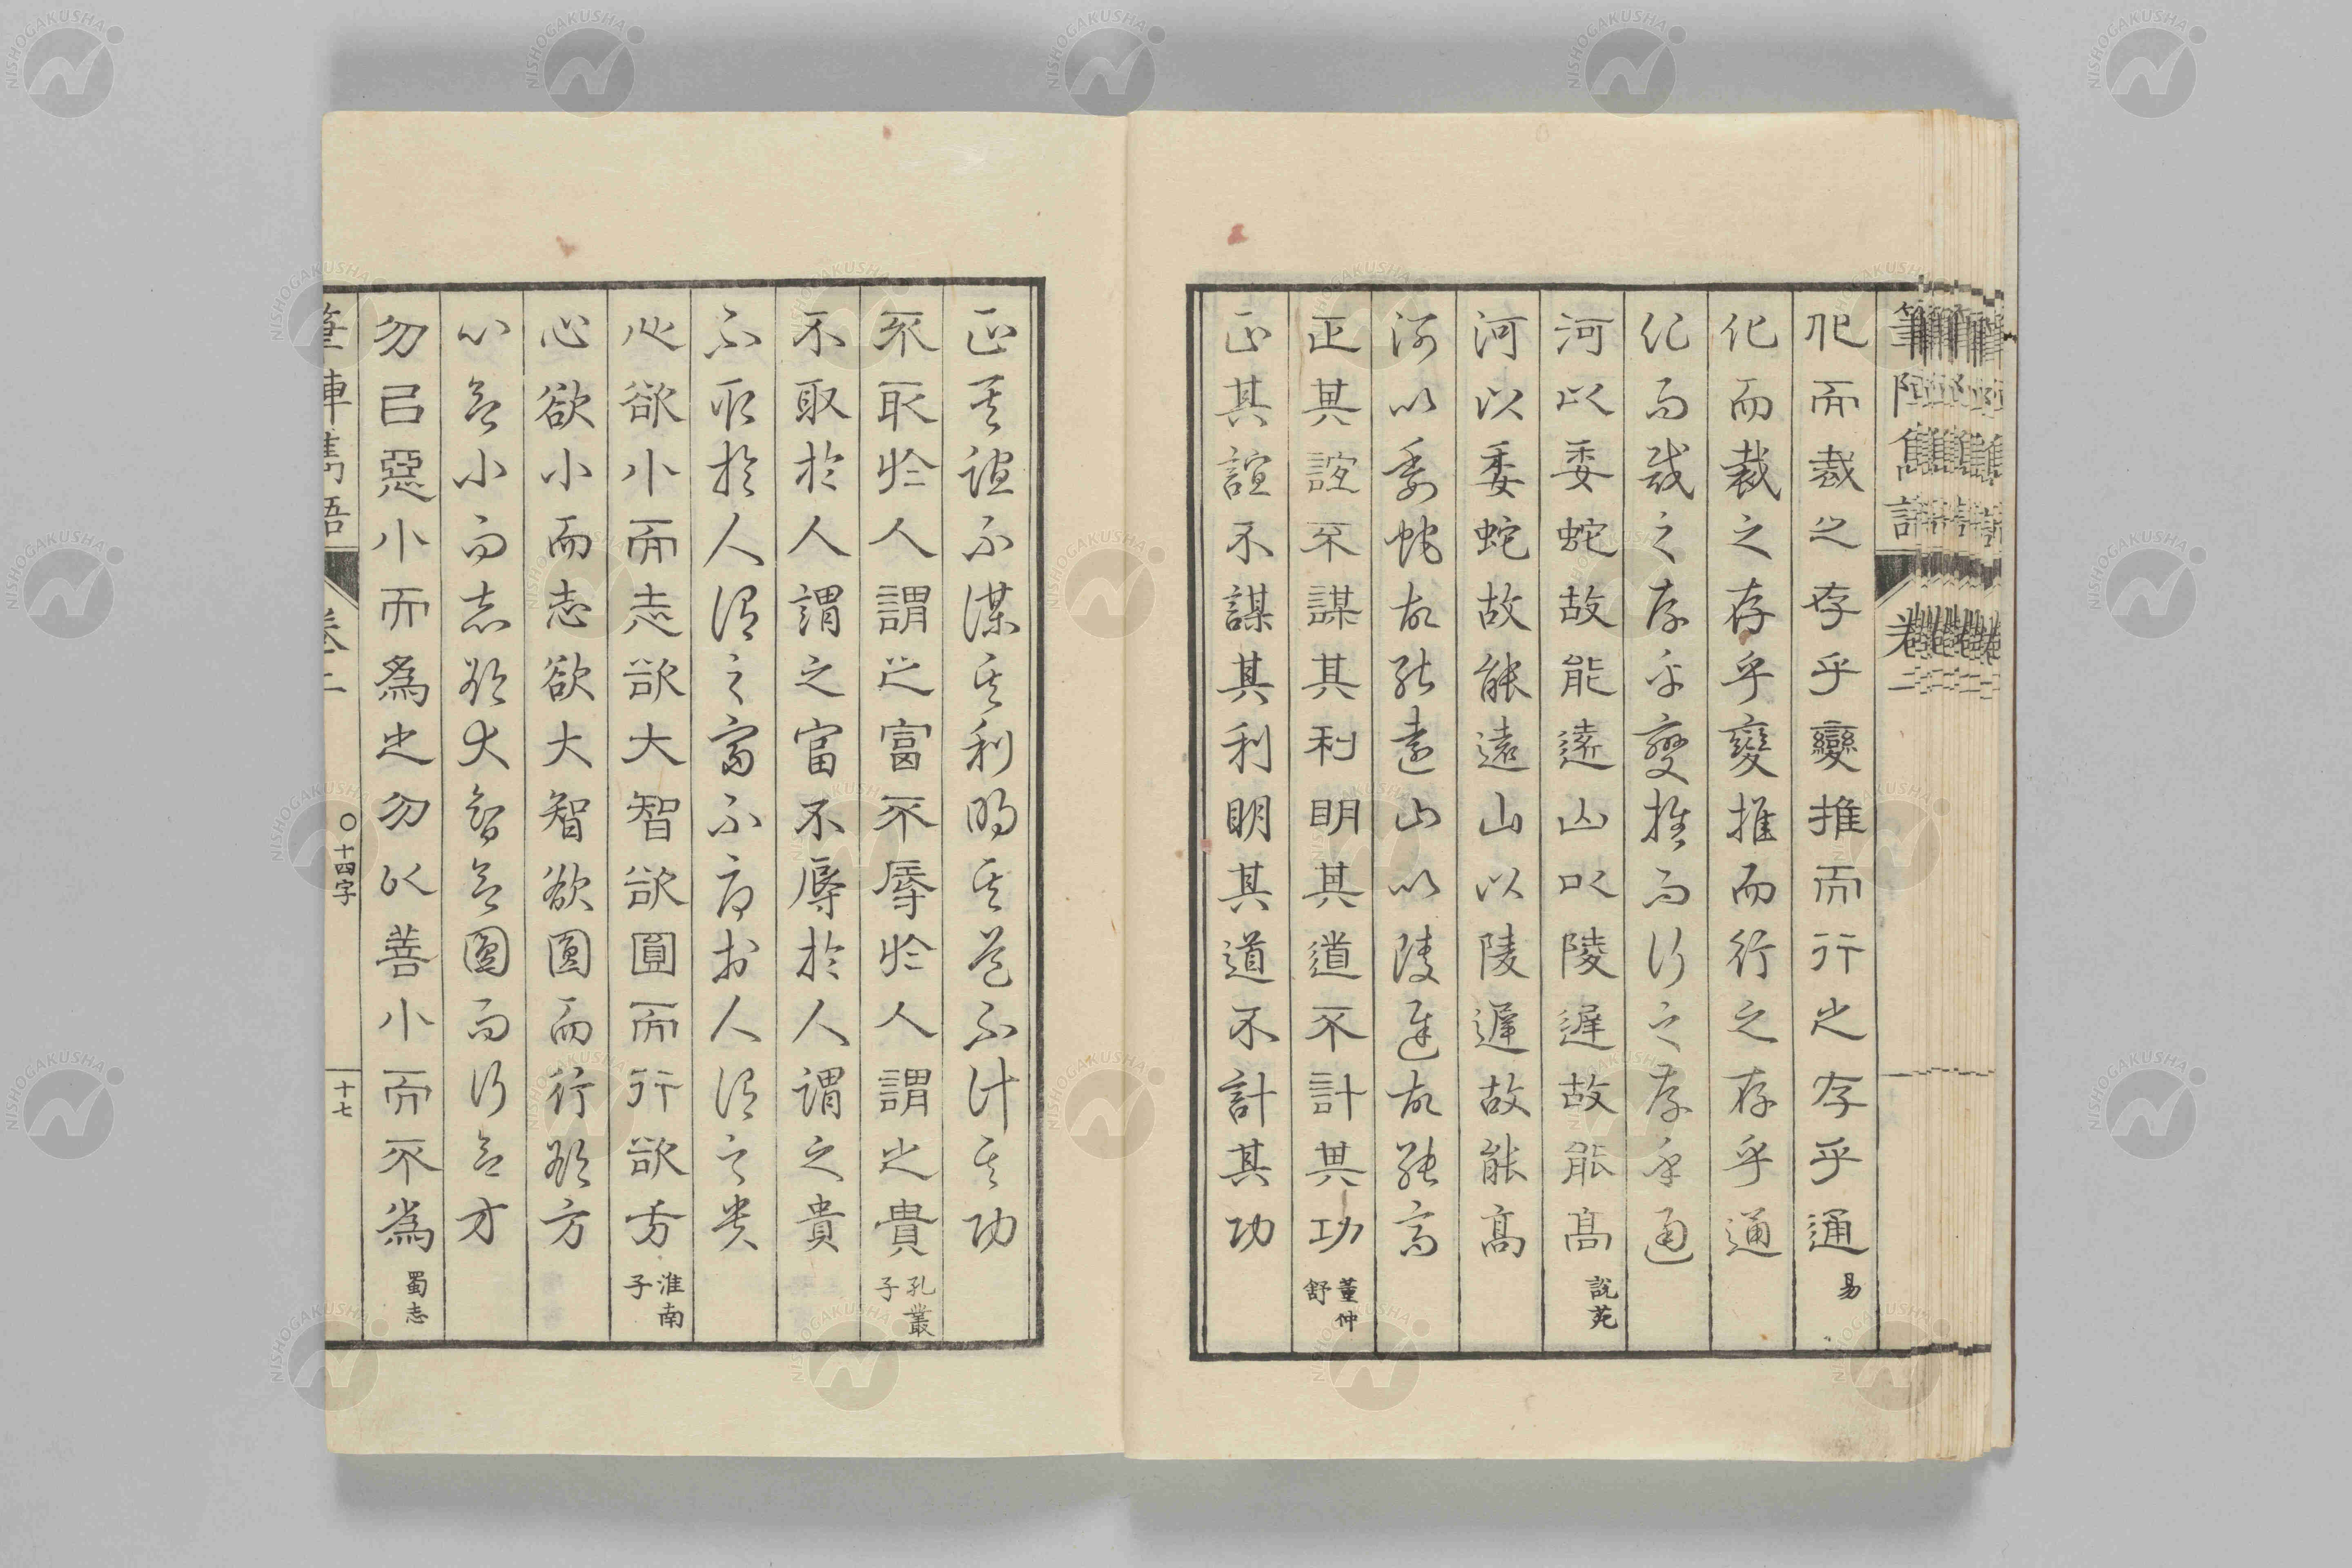 筆陣雋語 卷二
化而裁之存乎變推而行之存乎通 易
化而裁之存乎變推而行之存乎通
化而裁之存乎變推而行之存乎通
河以委蛇故能遠山以陵遲故能高 說苑
河以委蛇故能遠山以陵遲故能高
河以委蛇故能遠山以陵遲故能高
正其誼不謀其利明其道不計其功 董仲舒
正其誼不謀其利明其道不計其功
正其誼不謀其利明其道不計其功
不取於人謂之富不辱於人謂之貴 孔叢子
不取於人謂之富不辱於人謂之貴
不取於人謂之富不辱於人謂之貴
心欲小而志欲大智欲圓而行欲方 淮南子
心欲小而志欲大智欲圓而行欲方
心欲小而志欲大智欲圓而行欲方
勿㠯惡小而為之勿以善小而不為 蜀志
筆陣雋語 卷二 〇十四字 十七
NISHOGAKUSHA